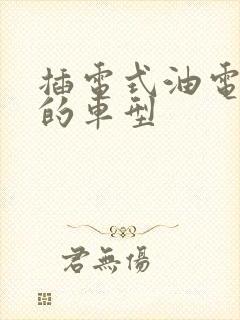 插電式油電
的車型
君無傷